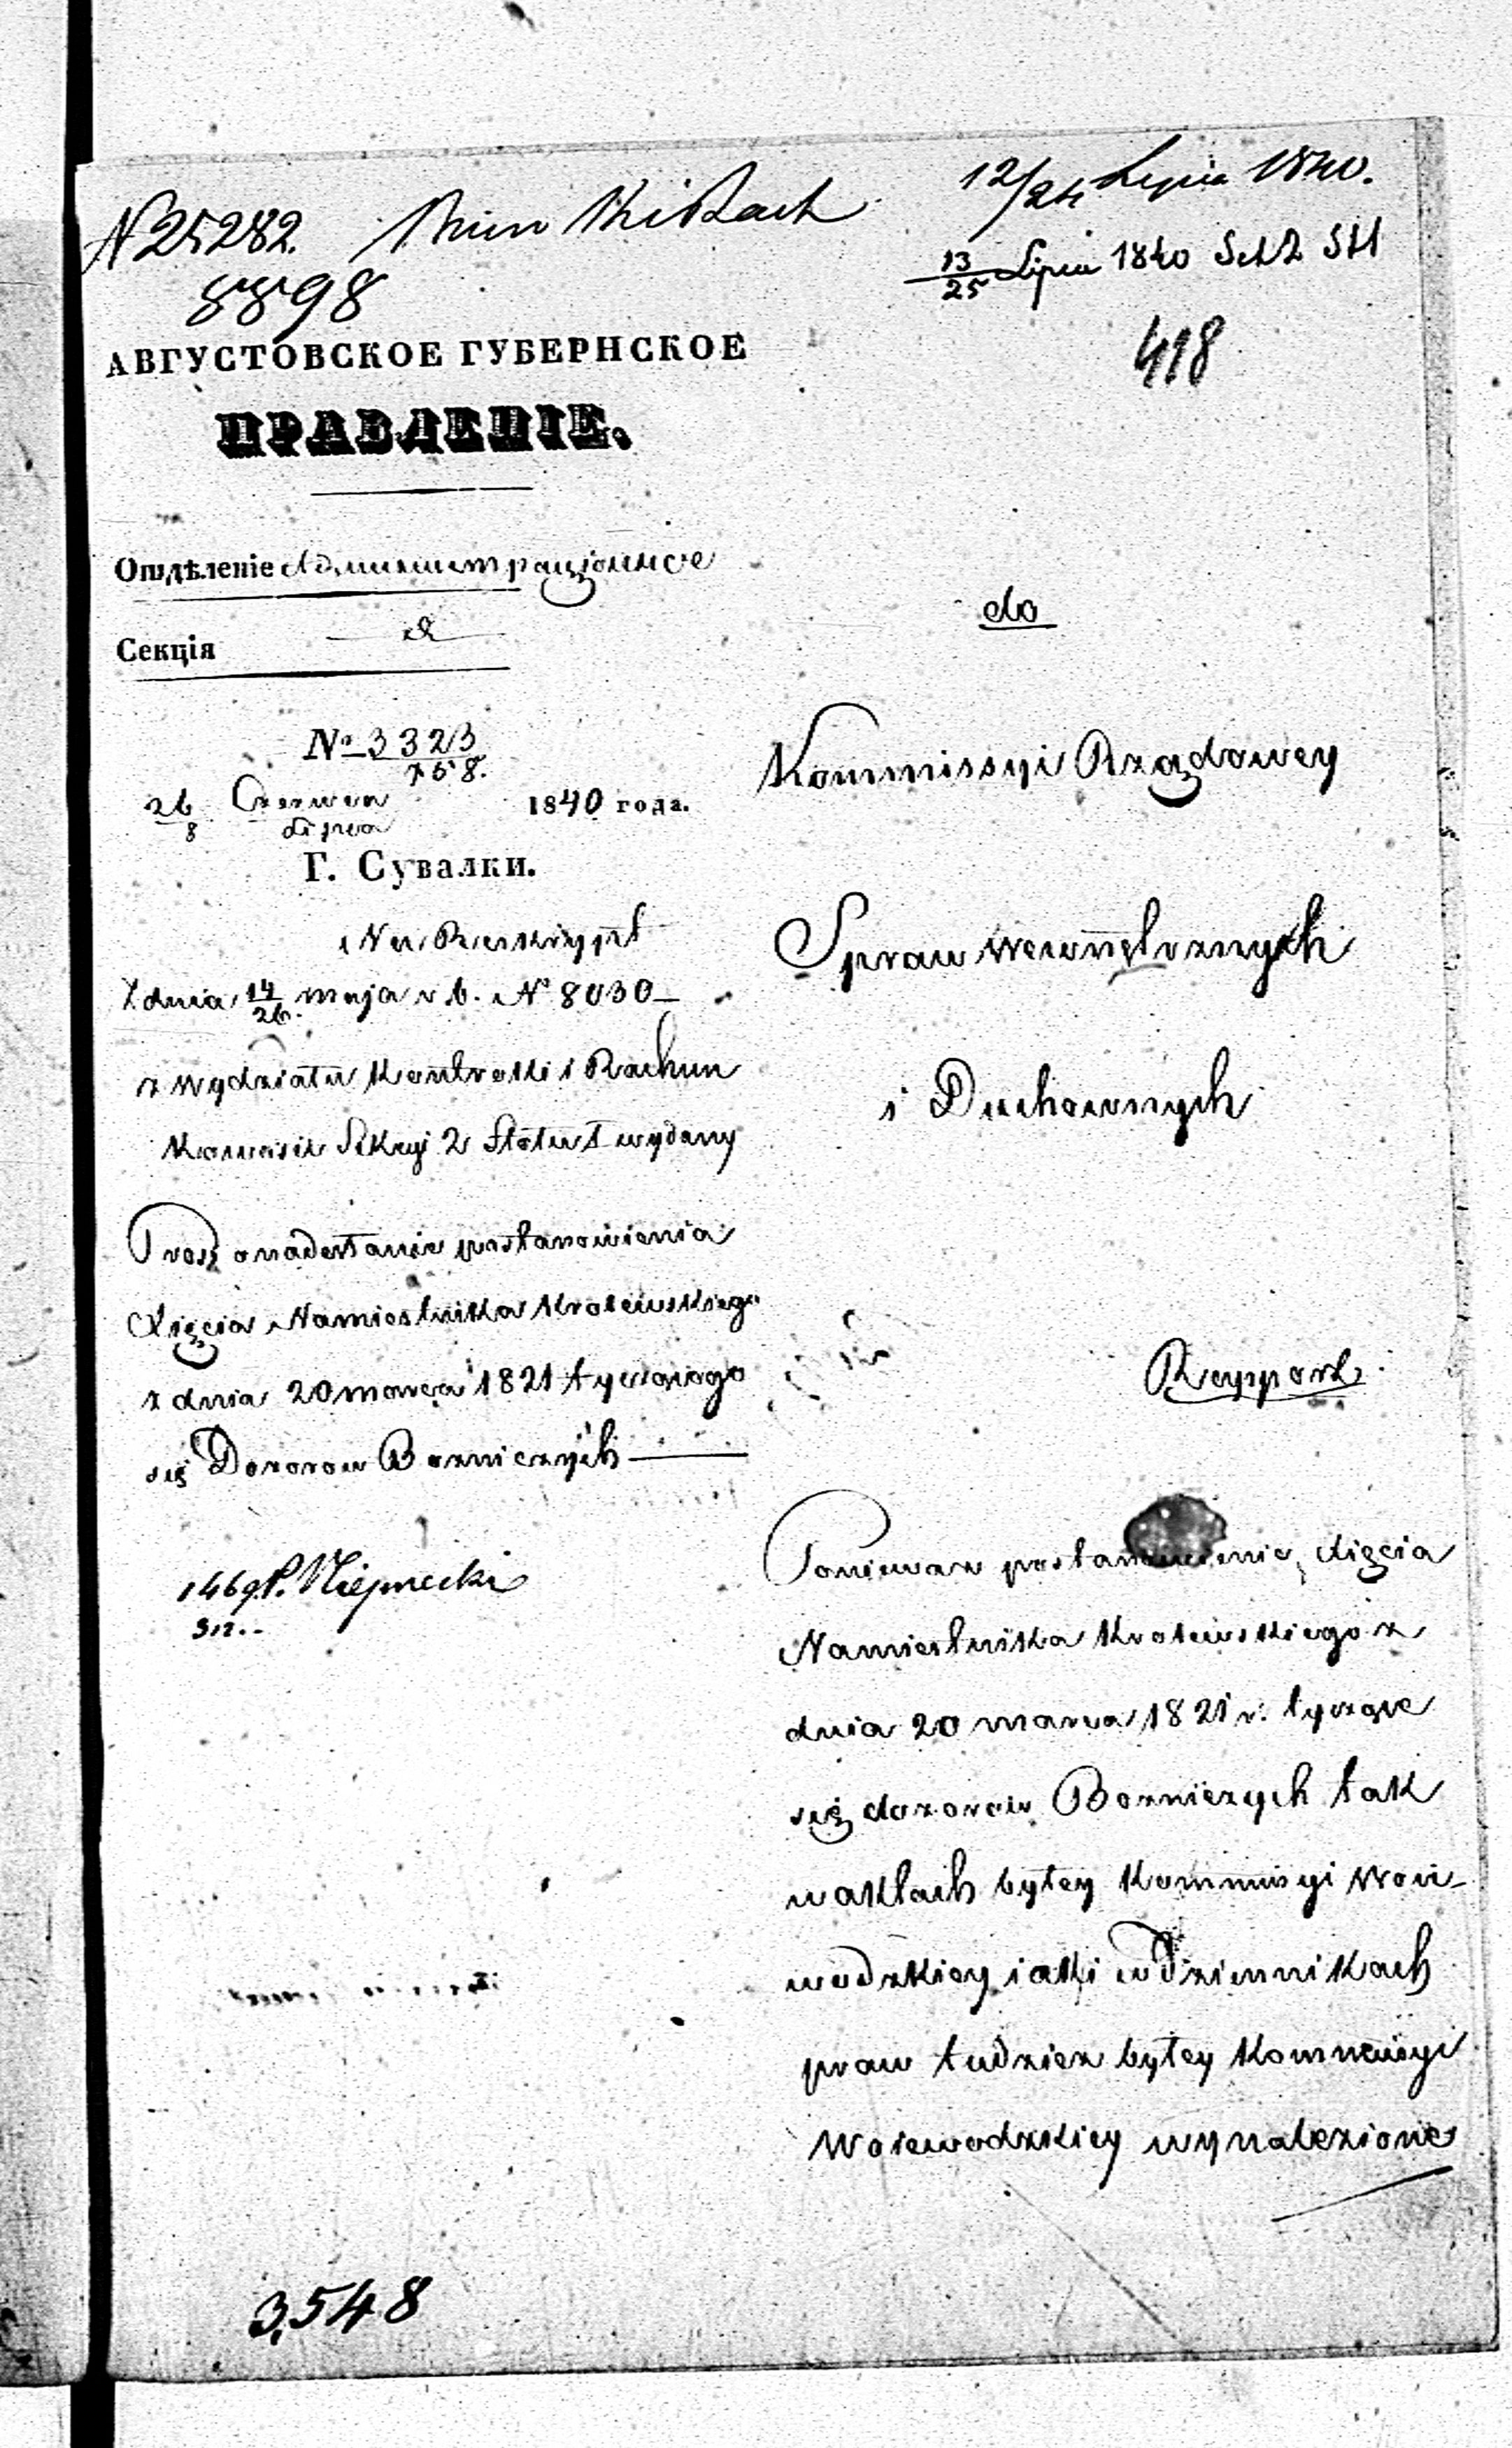 N 25282.
8898
12/24 Lipca 1840.
13/25 Lipca 1840
418
АВГУСТОВСКОЕ ГУБЕРНСКОЕ
ПРАВЛЕНІЕ.
Отдѣленіе Администраціонное
Секція
№ 3323
758.
26 Czerwca
8 Lipca
1840 года.
Г. Сувалки.
Na Reskrypt
z dnia 14/26 maja r. b. N° 8030
z Wydziału Kontrolli i Rachun
kowości Sekcyi 2 wydany
Prosi o nadesłanie postanowienia
Xięcia Namiestnika Krolewskiego
z dnia 20 marca 1821 tyczącego
się Dozorow Bozniczych
do
Kommissyi Rządowey
Spraw Wewnętrznych
i Duchownych
Rapport
Poniewaz postanowienie Xięcia
Namiestnika Krolewskiego z
dnia 20 marca 1821 r. tyczące
się dozorow Bozniczych tak
w aktach byłey Kommissyi Woie-
wodzkiey iak i w Dziennikach
praw tudziez byłey Kommissyi
Woiewodzkiey wynalezione
1469.
3,548